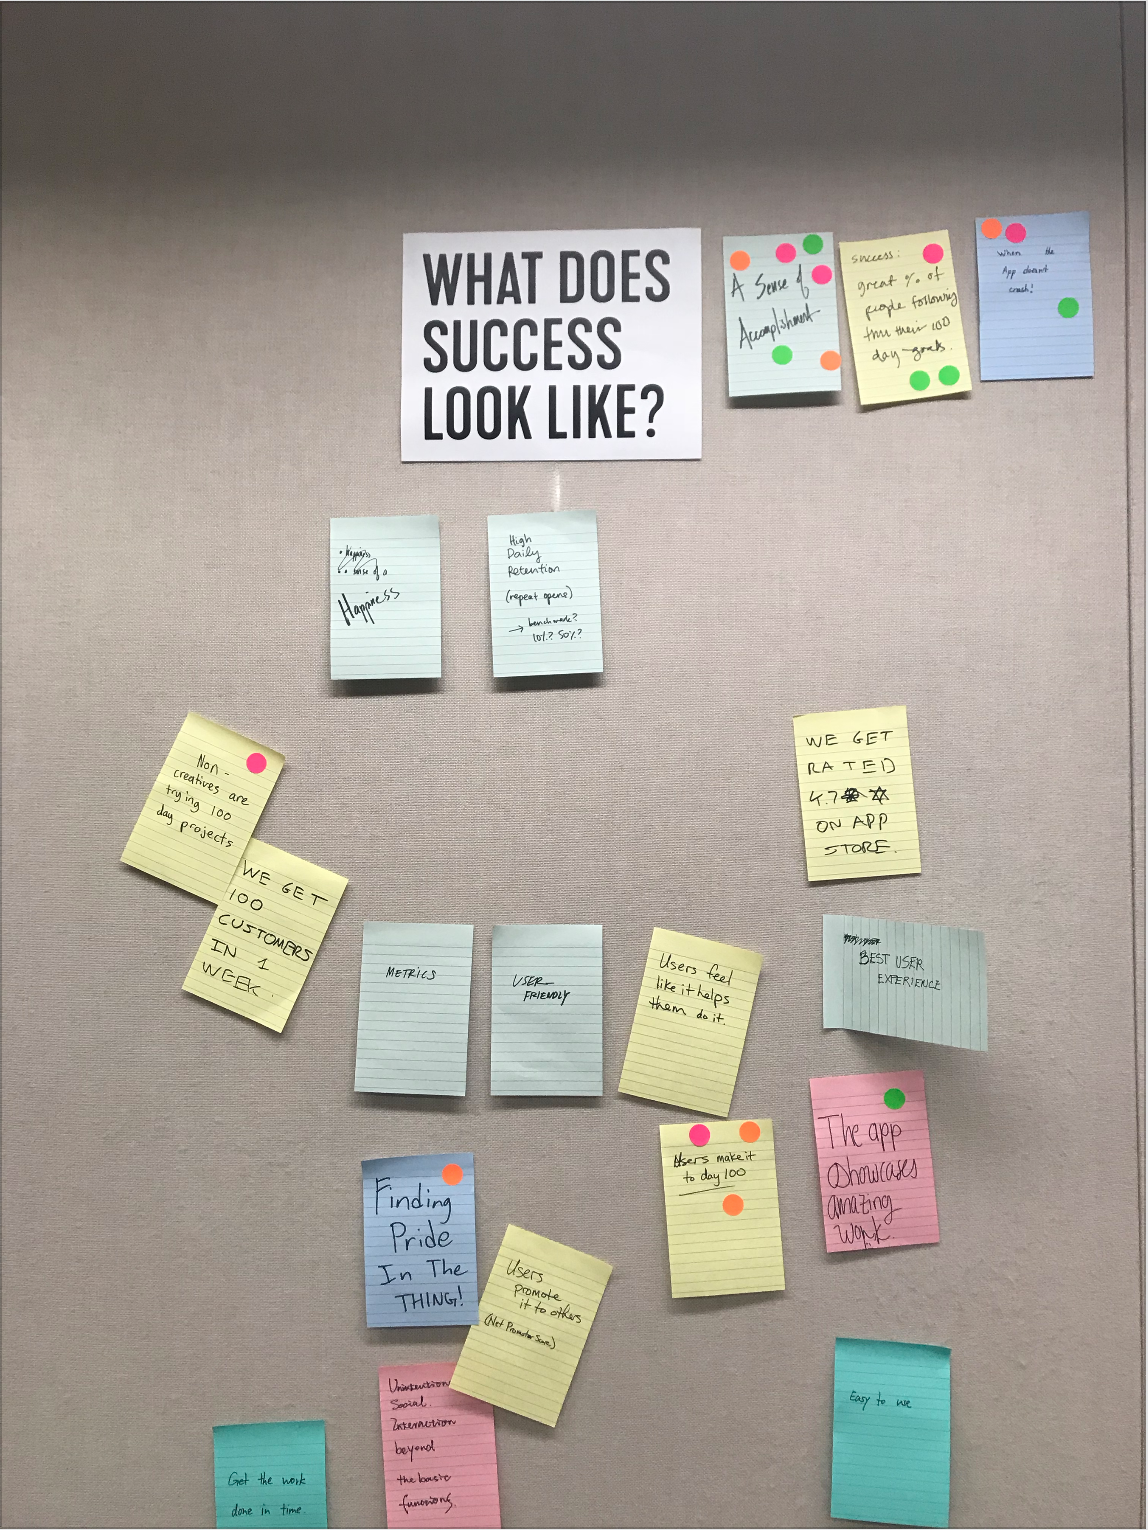 WHAT DOES
SUCCESS
LOOK LIKE?
A Sense of
Accomplishment
Success:
great % of
people following
thru their 100
day goals.
When the
App doesn't
crash!
• Happiness
• sense of a
Happiness
High
Daily
Retention
(repeat opens)
→ benchmark?
10%? 50%?
Non-
creatives are
trying 100
day projects
WE GET
RATED
4.7 ☆
ON APP
STORE.
WE GET
100
CUSTOMERS
IN 1
WEEK.
METRICS
USER
FRIENDLY
Users feel
like it helps
them do it.
BEST USER
EXPERIENCE
Users make it
to day 100
The app
showcases
amazing
work.
Finding
Pride
In The
THING!
Users
promote
it to others
(Net Promoter Score)
Social
Interaction
beyond
the basic
functions.
Easy to use
Get the work
done in time.